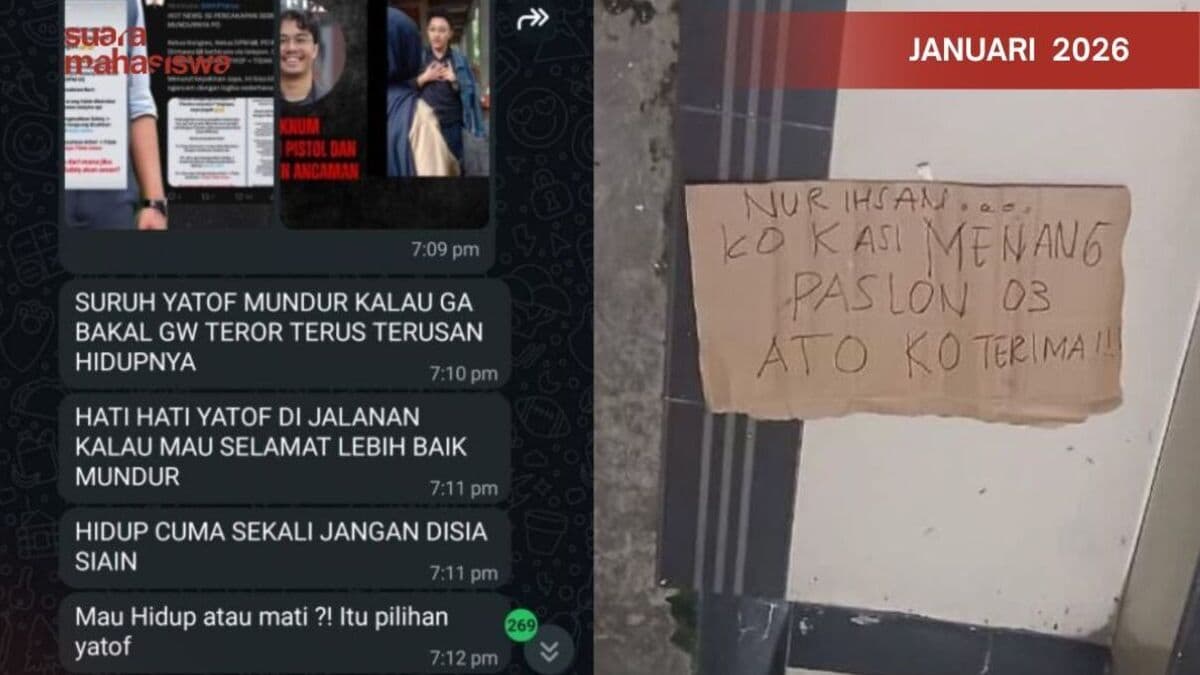 suara
mahasiswa
JANUARI 2026
KNUM
PISTOL DAN
N ANCAMAN
7:09 pm
SURUH YATOF MUNDUR KALAU GA
BAKAL GW TEROR TERUS TERUSAN
HIDUPNYA
7:10 pm
HATI HATI YATOF DI JALANAN
KALAU MAU SELAMAT LEBIH BAIK
MUNDUR
7:11 pm
HIDUP CUMA SEKALI JANGAN DISIA
SIAIN
7:11 pm
Mau Hidup atau mati ?! Itu pilihan
yatof
7:12 pm
269
NUR IHSAN....
KO KASI MENANG
PASLON 03
ATO KO TERIMA!!!